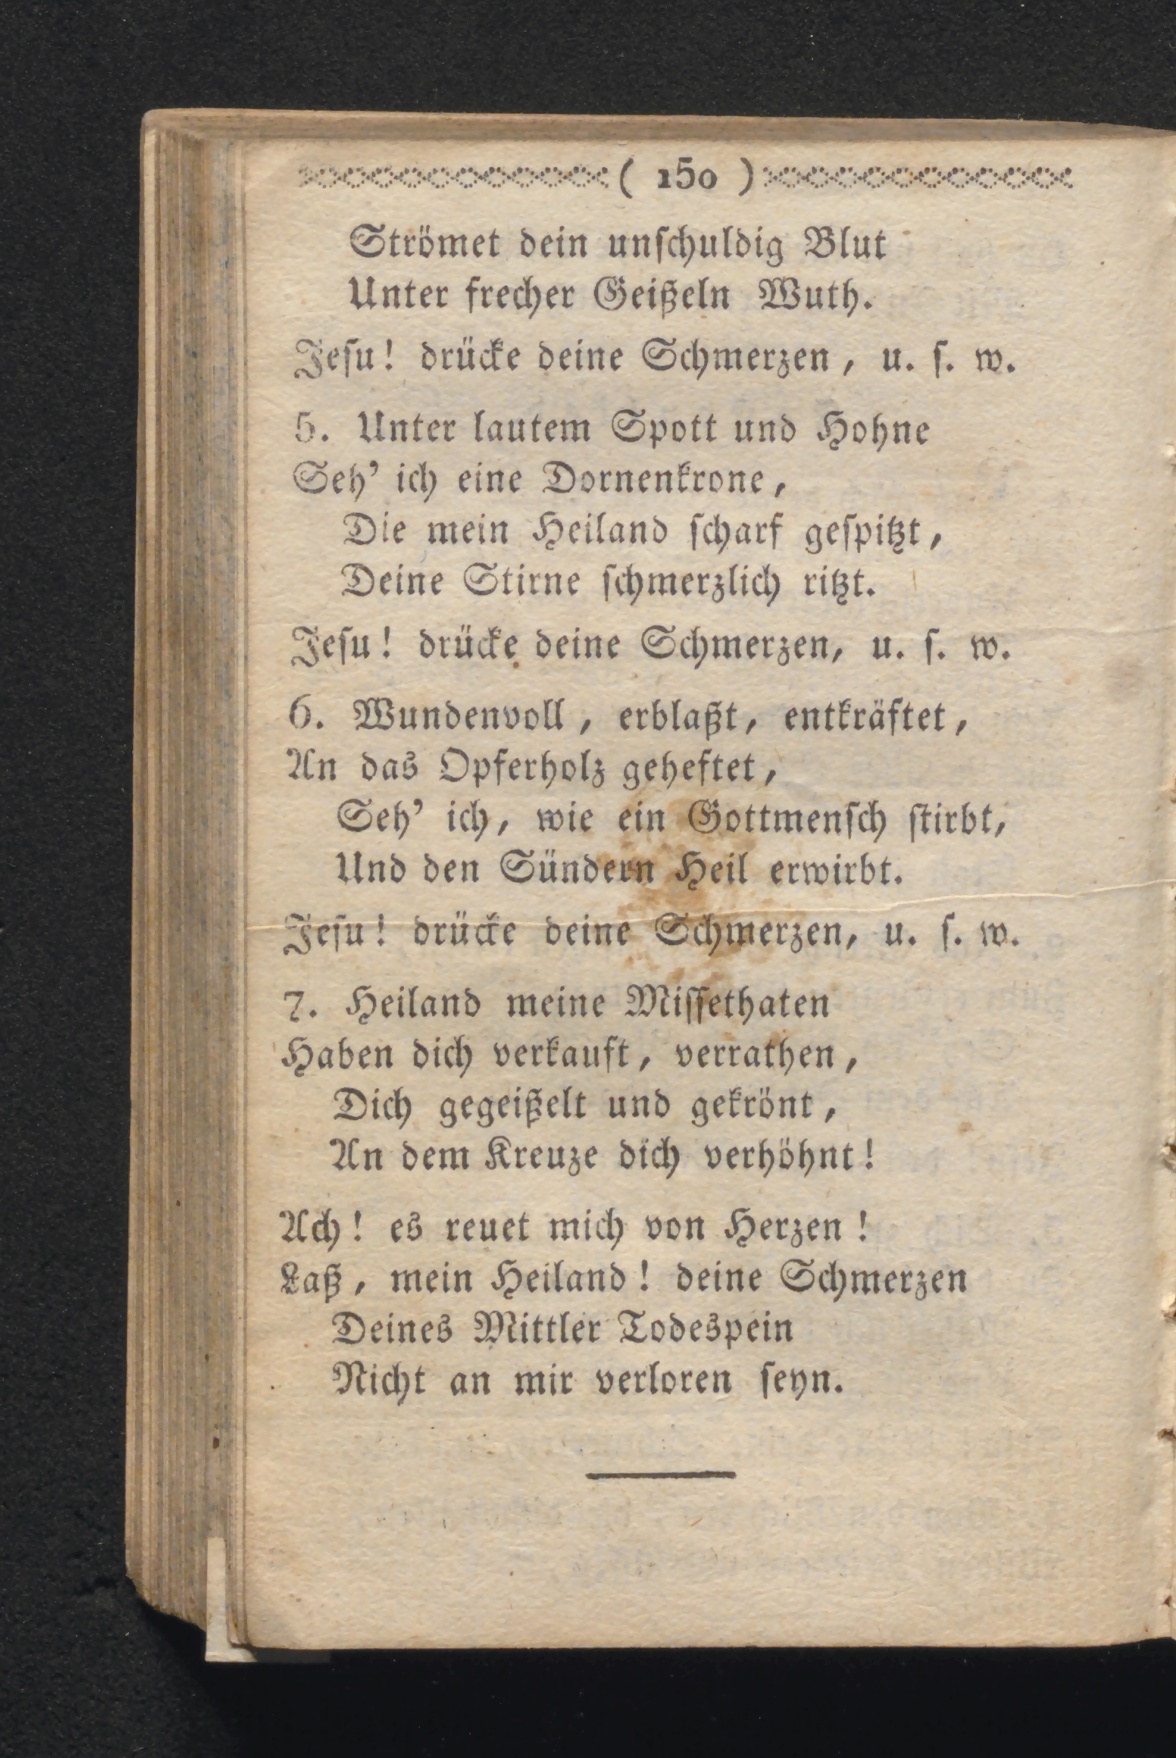 ( 150 )
Strömet dein unſchuldig Blut
Unter frecher Geißeln Wuth.
Jeſu! drücke deine Schmerzen, u. ſ. w.
5. Unter lautem Spott und Hohne
Seh' ich eine Dornenkrone,
Die mein Heiland ſcharf geſpitzt,
Deine Stirne ſchmerzlich ritzt.
Jeſu! drücke deine Schmerzen, u. ſ. w.
6. Wundenvoll, erblaßt, entkräftet,
An das Opferholz geheftet,
Seh' ich, wie ein Gottmenſch ſtirbt,
Und den Sündern Heil erwirbt.
Jeſu! drücke deine Schmerzen, u. ſ. w.
7. Heiland meine Miſſethaten
Haben dich verkauft, verrathen,
Dich gegeißelt und gekrönt,
An dem Kreuze dich verhöhnt!
Ach! es reuet mich von Herzen!
Laß, mein Heiland! deine Schmerzen
Deines Mittler Todespein
Nicht an mir verloren ſeyn.